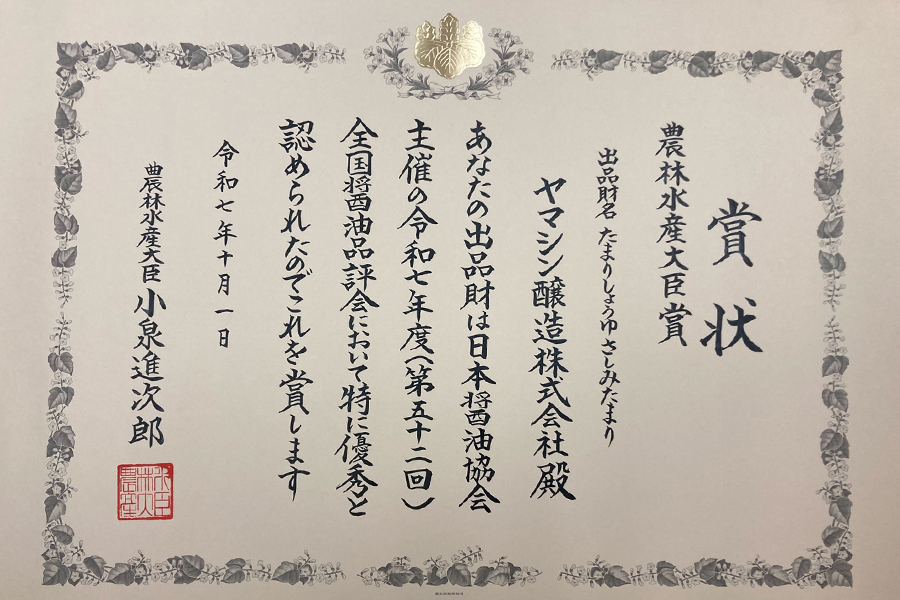 賞状
農林水産大臣賞
出品財名 たまりしょうゆ さしみたまり
ヤマシン醸造株式会社殿
あなたの出品財は日本醤油協会
主催の令和七年度(第五十二回)
全国醤油品評会において特に優秀と
認められたのでこれを賞します
令和七年十月一日
農林水産大臣 小泉進次郎